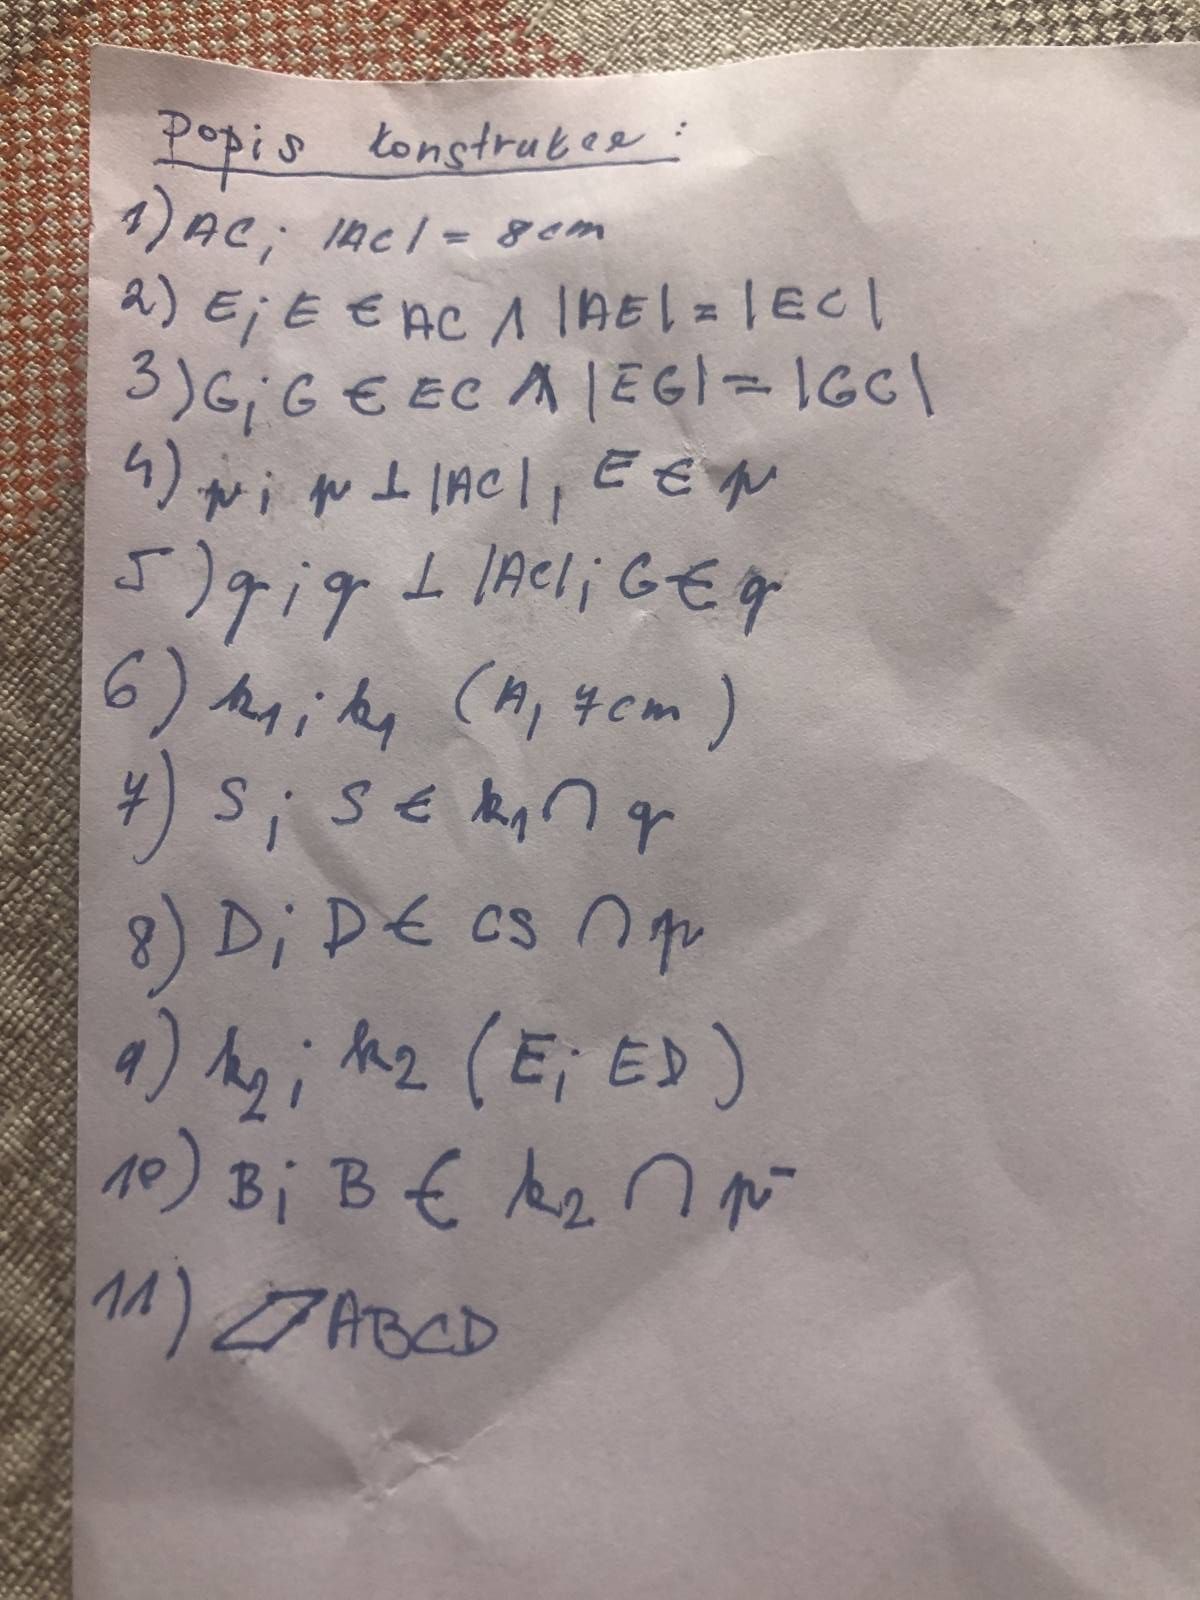 Popis konstrukce:
1) AC; |AC| = 8cm
2) E; E € AC ∧ |AE| = |EC|
3) G; G € EC ∧ |EG| = |GC|
4) p; p ⊥ |AC|, E € p
5) q; q ⊥ |AC|; G € q
6) k₁; k₁ (A, 7cm)
7) S; S € k₁ ∩ q
8) D; D € CS ∩ p
9) k₂; k₂ (E; ED)
10) B; B € k₂ ∩ p
11) ▱ ABCD